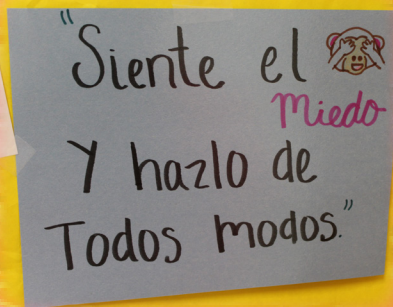 "Siente el
Miedo
Y hazlo de
Todos modos."